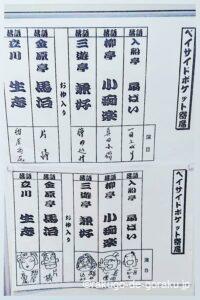 ベイサイドポケット寄席
演目
落語 入船亭 扇ぱい
落語 柳亭 小痴楽
落語 三遊亭 兼好
お仲入り
落語 金原亭 馬治
片棒
落語 立川 生志
ベイサイドポケット寄席
演目
落語 入船亭 扇ぱい
落語 柳亭 小痴楽
落語 三遊亭 兼好
お仲入り
落語 金原亭 馬治
落語 立川 生志